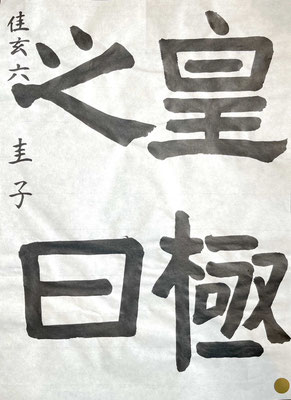 皇極
之曰
佳玄六 圭子